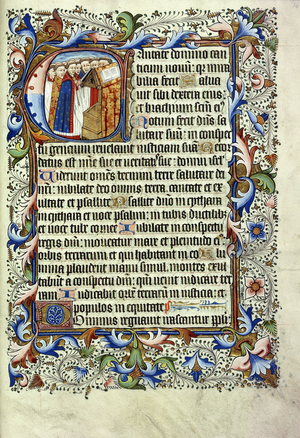 antate domino can
ticum novū: q̄r mira
bilia fecit Salua
uit sibi dextera eius
et brachium scūm ei⁹
Notum fecit dn̄s sa
lutare suū: in conspec
tu gencium reuelauit iusticiam suā Recor
datus est mīe sue et ueritatis sue: domui isrł
Uiderunt om̄es termini terre salutare dei
nr̄i: iubilate deo omnis terra: cantate et ex
ultate et psallite Psallite dn̄o in cythara
in cythara et uoce psalmi: in tubis ductilib⁹
et uoce tube cornee Iubilate in conspectu
regis dn̄i: moueatur mare et plenitudo ei⁹
orbis terrarum et qui habitant in eo Flu
mina plaudent manu simul. montes exul
tabūt a conspectu dn̄i: quoniam uenit iudicare ter
ram Iudicabit orbē terrarū in iusticia: et
populos in equitate
Dominus regnauit irascantur ppłi: